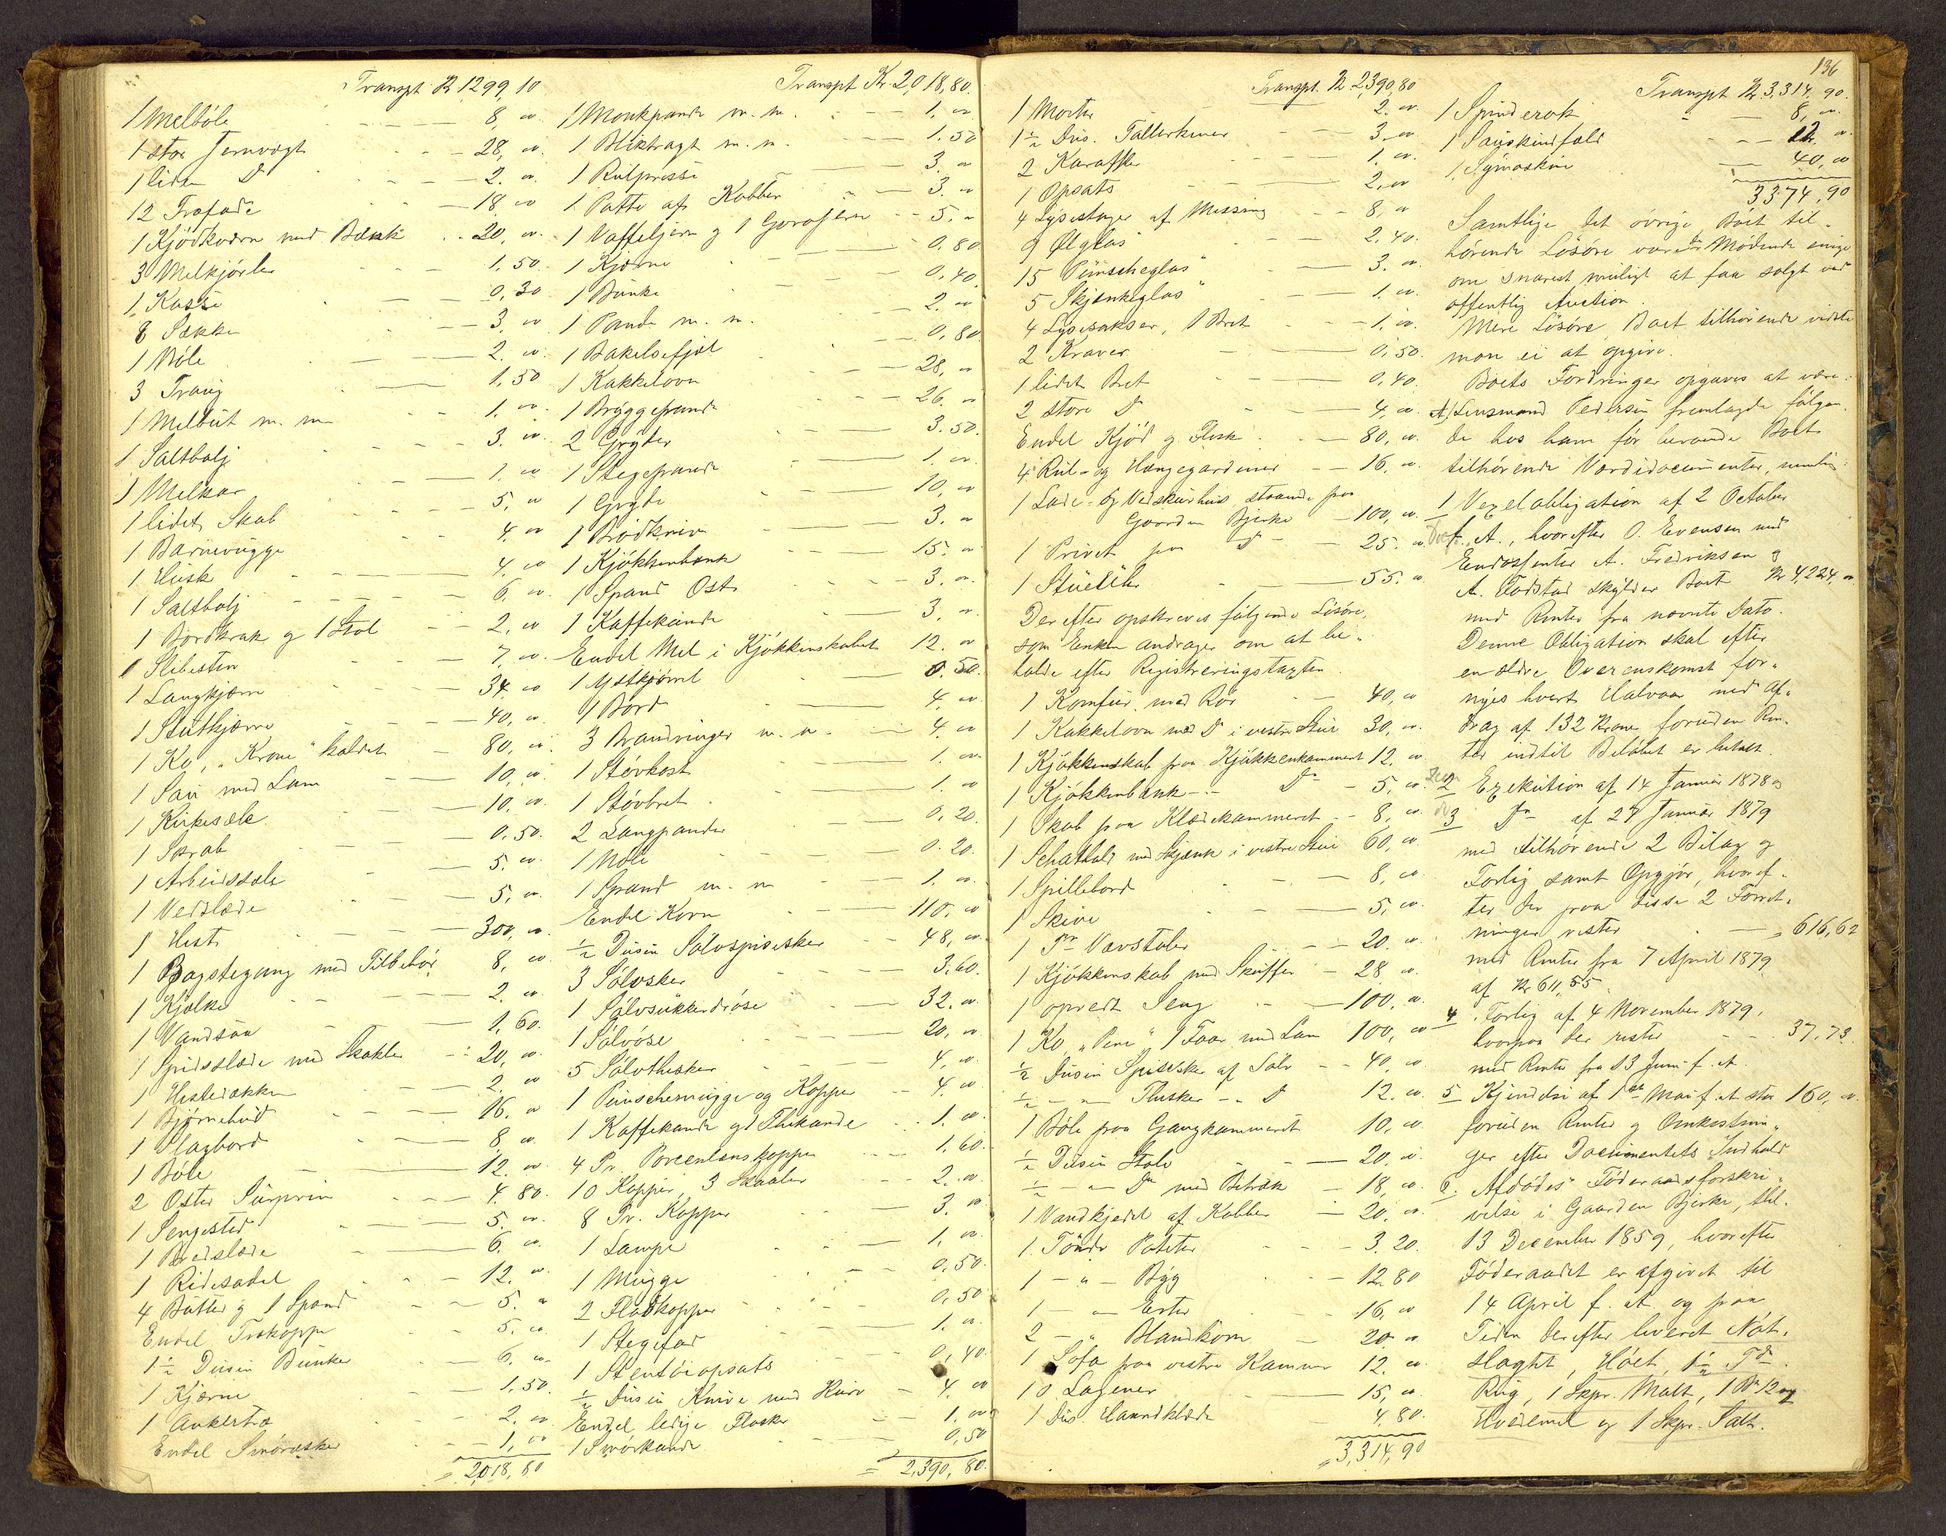 Transpt Kr 1299,10
1 Melböle - 8, "
1 stor Jernvægt - 28, "
1 liden Do - 2. "
12 Træfade - 18 "
1 Kjödkværn med Bænk - 20, "
3 Melkjörler - 1,50.
1 Kasse - 0,30
8 Sække - 3, "
1 Böle - 2. "
3 Traug - 1,50
1 Melbut m. m - 1. "
1 Saltbalj - 3. "
1 Melkar - 1. "
1 lidet Skab - 5, "
1 Barnevugge - 4. "
1 Husk - 4. "
1 Saltbalj - 6. "
1 Bordkrak og 1 Stol - 2. "
1 Slibesten - 7. "
1 Langkjærre - 34. "
1 Stutkjærre - 40, "
1 Ko, "Krone" kaldet - 80, "
1 Sau med Lam - 10, "
1 Kirkesæle - 10, "
1 Skrab - 0,50.
1 Arbeidssæle - 5, "
1 Vedslæde - 5, "
1 Hest - 300, "
1 Bogstegang med Tilbehör - 8, "
1 Kjælke - 2. "
1 Vandsaa - 1,60.
1 Spidsslæde med Skokler - 20, "
1 Hestedækken - 2. "
1 Bjørnehud - 16. "
1 Slagbord - 8, "
1 Böle - 12. "
2 Oster Surprim - 4,80.
1 Sengested - 5. "
1 Bredslæde - 6. "
1 Ridesadel - 12. "
4 Bötter og 1 Spand - 5. "
Endel Trækopper - 5. "
1 1/2 Dusin Bunker - 6. "
1 Kjærne - 1,50.
1 Ankertræ - 2. "
Endel Smöræsker - 1, "
= 2,018,80
Transpt Kr. 2,018,80.
1 Monkpande m. m. - 1. "
1 Bliktragt m. m. - 1.50
1 Rulpresse - 3. "
1 Potte af Kobber - 3. "
1 Vaffeljern og 1 Gorojern - 5. "
1 Kjærne - 0.80
1 Bunke - 0,40.
1 Pande m. m. - 2. "
1 Bakelsefjöl - 0,80
1 Kakkelovn - 28, "
1 Bryggepande - 26. "
2 Gryder - 3.50.
1 Stegepande - 1. "
1 Gryde - 10, "
1 Brödkniv - 3. "
1 Kjökkenbænk - 15. "
1 Spand Ost - 3. "
1 Kaffekande - 3. "
Endel Mel i Kjökkenskabet 12. "
1 Ystkjørrel - 0.50.
1 Bord - 4. "
3 Brandringer m. m. - 4. "
1 Støvkost - 1. "
1 Støvbret - 1. "
2 Langpander - 0,20.
1 Nole - 0.20.
1 Spand m. m - 1. "
Endel Korn - 110, "
1/2 Dusin Sölvspiseskeer - 48, "
3 Sölvskeer - 3,60.
1 Sölvsukkerdröse - 32. "
1 Sölvöse - 20, "
5 Sölvtheskeer - 4, "
1 Punschemugge og Kopper - 4. "
1 Kaffekande og 1 Thekande - 1. "
4 Pr. Porcenlænskopper - 1,60.
10 Kopper, 3 Skaaler - 2. "
8 Pr. Kopper - 3. "
1 Lampe - 1, "
1 Mugge - 0,50.
2 Fladkopper - 0,50
1 Stegefad - 1. "
1 Stentöiopsats - 0,40
1/2 Dusin Knive med Kurv - 4. "
Endel ledige Flasker - 1, "
1 Smörkande - 0,50
= 2,390,80.
136
Transpt. Kr 2,390,80
1 Morter - 2. "
1 1/2 Dus. Tallerkener - 3. "
2 Karaffler - 1. "
1 Opsats - 2, "
4 Lysestager af Messing - 8, "
9 Ölglas - 2,40.
15 Punscheglas - 3. "
5 Skjænkeglas - 1. "
4 Lysesakser, 1 Bret - 1. "
2 Kraver - 0,50.
1 lidet Bret - 0,40.
2 store Do - 4. "
Endel Kjöd og Flesk - 80, "
4 Rul- og Hængegardiner - 16, "
1 Lade- og Vedskurhus staaende paa
Gaarden Bjerke - 100, "
1 Privet paa Do - 25. "
1 Stueuhr - 55. "
Derefter opskreves følgende Lösöre,
som Enken androger om at be-
holde efter Registreringstaxten.
1 Komfur med Rör - 40, "
1 Kakkelovn med Do i vestre Stue 30, "
1 Kjökkenskab paa Kjökkenkammert 12. "
1 Kjökkenbænk - Do - 5, "
1 Skab paa Klædekammeret - 8, "
1 Schattold med Skjænk i vestre Stue 60, "
1 Spillebord - 8, "
1 Skive - 5, "
1 Pr Vævstoler - 20. "
1 Kjökkenskab med Skuffer - 28 "
1 opredt Seng - 100, "
1 Ko "Pene", 1 Faar med Lam 100, "
1/2 Dusin Spiseskeer af Sölv - 40, "
1/2 - " - Theskeer - " Do 12. "
1 Böle paa Gangkammeret 10, "
1/2 Dusin Stole - 20. "
1/2 - " - Do med Betræk - 18, "
1 Vandkjedel af Kobber - 20. "
1 Tönde Poteter - 3.20.
1 - " - Byg - 12.80
1 - " Erter - 16, "
2 - " Blandkorn - 20. "
1 Sofa paa vestre Kammer 12. "
10 Lagener - 15, "
1 Dus. Haandklæde - 4.80.
= 3,314,90
Transpt Kr 3,314,90.
1 Spinderok - 8, "
1 Saueskindfeld - 12. "
1 Symaskine - 40, "
3374,90
Samtlige det övrige Boet til-
hörende Lösöre var de Mödende enige
om snarest muligt at faa solgt ved
offentlig Auction.
Mere Lösöre Boet tilhørende vidste
man ei at opgive.
Boets Fordringer opgaves at være:
A/ Lensmand Pedersen fremlagde fölgen-
de hos ham för beroende Boet
tilhörende Værdidocumenter, nemlig:
1 Vexelobligation af 2 October
f. A., hvorefter O. Evensen med
Endossenter A. Fredriksen og
A. Flodstad skylder Boet Kr 4,224, "
med Renter fra nævnte Dato.
Denne Obligation skal efter
en ældre Overenskomst for-
nyes hvert Halvaar med Af-
drag af 132 Kroner foruden Ren-
ter indtil Beløbet er betalt.
2 Exekution af 14 Januar 1878 og
3 Do af 24 Januar 1879
med tilhörende 2 Bilag og
Forlig samt Opgjör, hvoref-
ter der paa disse 2 Forret-
ninger rester - " 616,62
med Renter fra 7 April 1879
af Kr 611,55.
4. Forlig af 4 November 1879,
hvorpaa der rester - 37,73.
med Renter fra 13 Juni f. A.
5 Kjendelse af 1ste Mai f. A. stor 160, "
foruden Renter og Omkostnin-
ger efter Documentets Indhold
6. Afdødes Föderaadsforskri-
velse i Gaarden Bjerke, thl.
13 December 1859, hvorefter
Föderaadet er afgivet til
14 April f. A. og paa
Tiden derefter leveret Nöt-
slagtet, Höet, 1 1/2 Tde
Rug, 1 Skpr. Malt, 1 Bl 12 ℔
Hvedemel og 1 Skpr. Salt.